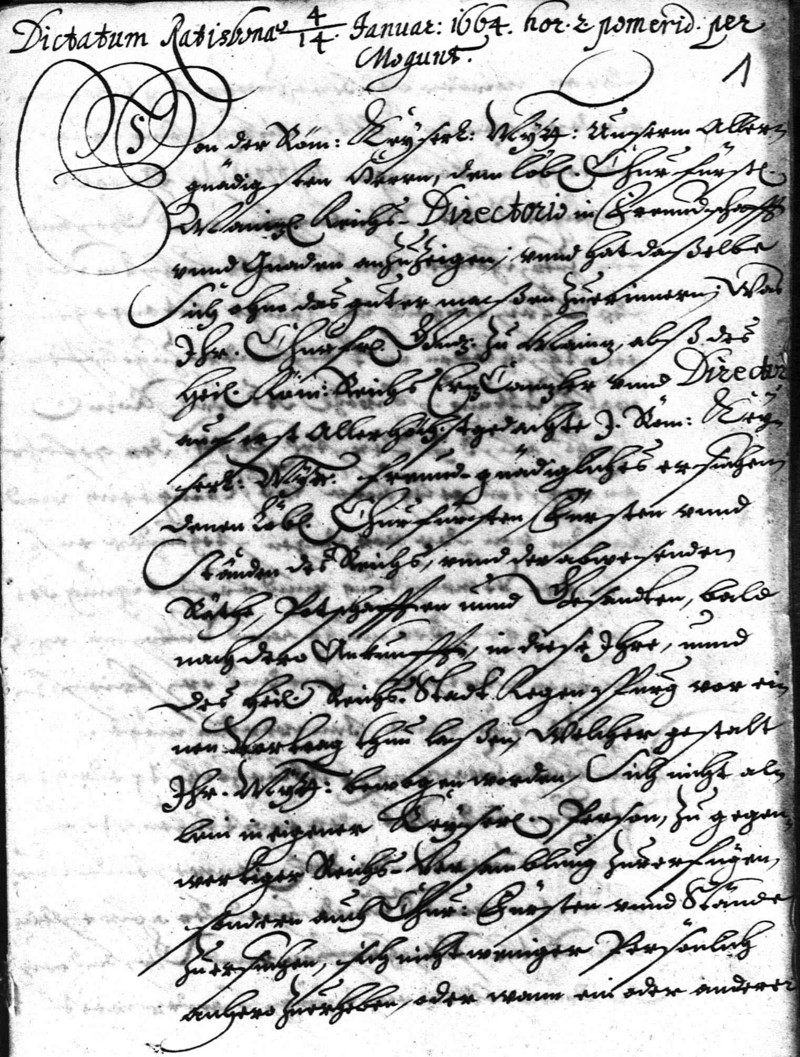 Dictatum Ratisbonae 4/14. Januar: 1664. hor. 2 pomerid. per
Mogunt.
1
Von der Röm: Keyserl: Maytt: Unserm Aller-
gnädigsten Herrn, dem löbl. Churfürstl.
Mainzl. Reichs-Directorio in Freundschafft
unnd Gnaden anzuzeigen, unnd hat dasselbe
Sich ohne das guter massen zuerinnern, Was
Ihr. Churfrl. Gnd: zu Mainz, alß des
Heil. Röm: Reichs ErzCanzler unnd Director
auf erst Allerhöchstgedachte I. Röm: Key-
serl: Maytt. freund-gnädigliches ersuchen
denen Löbl. Churfürsten Fürsten unnd
Ständen des Reichs, unnd der abwesenden
Räthe, Potschafften unnd Gesandten, bald
nach dero Ankunfft, in diese Ihre, unnd
des Heil. Reichs-Stadt Regenspurg vor ei-
nen Vortrag thun lassen, Welcher gestalt
Ihr. Maytt: bewogen worden, Sich nicht al-
lein in eigener Keyserl. Person, zu gegen-
wertiger Reichs-Versamblung zuverfügen,
sondern auch Chur: Fürsten unnd Stände
zuersuchen, sich nicht weniger Persönlich
anhero zuerheben, oder wann ein oder anderer